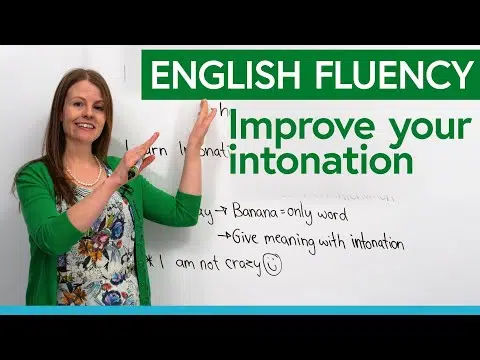 ENGLISH FLUENCY
Improve your
intonation
→ Banana = only word
→ Give meaning with intonation
* I am not crazy ☺